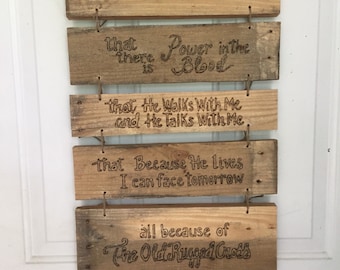 that there is Power in the Blood
that He Walks With Me
and He Talks With Me
that Because He lives
I can face tomorrow
all because of
The Old Rugged Cross